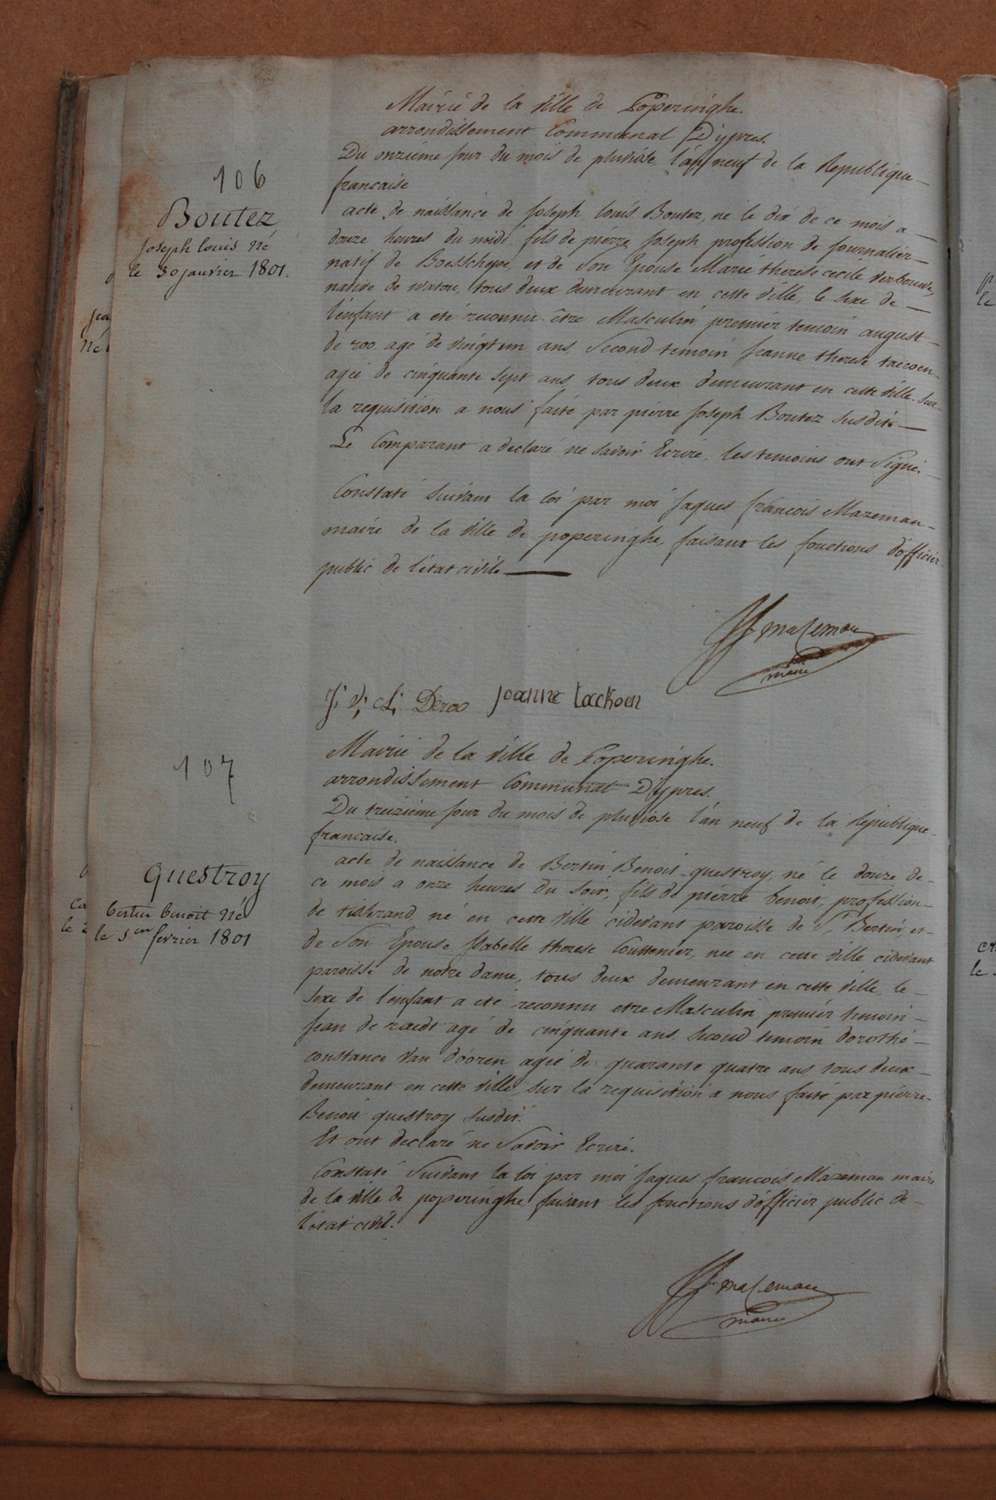 Mairie de la Ville de Poperinghe.
arrondissement Communal D'ypres.
Du onzième jour du mois de pluviose l'an neuf de la Republique
française
106
Boutez
Joseph louis Né
le 30 janvier 1801.
acte de naissance de Joseph louis Boutez, ne le dix de ce mois a
douze heures du midi fils de pierre Joseph profession de journalier
natif de Boesschepe, et de Son Epouse Marie therese cecile
native de watou, tous deux demeurant en cette ville, le sexe de
l'enfant a été reconnu être Masculin premier temoin august
de roo agé de vingt un ans, Second temoin Jeanne therese
agée de cinquante sept ans, tous deux demeurant en cette ville. Sur
la requisition a nous faite par pierre Joseph Boutez susdit
Le Comparant a declaré ne savoir Ecrire, les temoins ont Signé.
Constaté Suivant la loi par moi Jaques françois Mazeman
maire de la ville de poperinghe faisant les fonctions d'officier
public de l'etat civile
Mazeman
maire
Deroo Joanne tackoen
107
Mairie de la Ville de Poperinghe.
arrondissement Communal D'ypres.
Du treizième jour du mois de pluviose l'an neuf de la République
francaise.
Questroy
bertin benoit Né
le 1er février 1801
acte de naissance de Bertin Benoit questroy, né le douze de
ce mois a onze heures du Soir, fils de pierre benoit, profession
de tisserand, né en cette Ville cidevant paroisse de St Bertin, et
de Son Epouse Isabelle therese Couttenier, née en cette ville cidevant
paroisse de notre dame, tous deux demeurant en cette ville, le
sexe de l'enfant a été reconnu etre Masculin premier temoin
Jean de raedt agé de cinquante ans second temoin dorothé
constance Van dooren agée de quarante quatre ans tous deux
demeurant en cette ville sur la requisition a nous faite par pierre
Benoit questroy susdit.
Et ont declaré ne Savoir Ecrire.
Constaté Suivant la loi par moi Jaques francois Mazeman maire
de la ville de poperinghe faisant les fonctions d'officier public de
l'etat civil.
Mazeman
maire